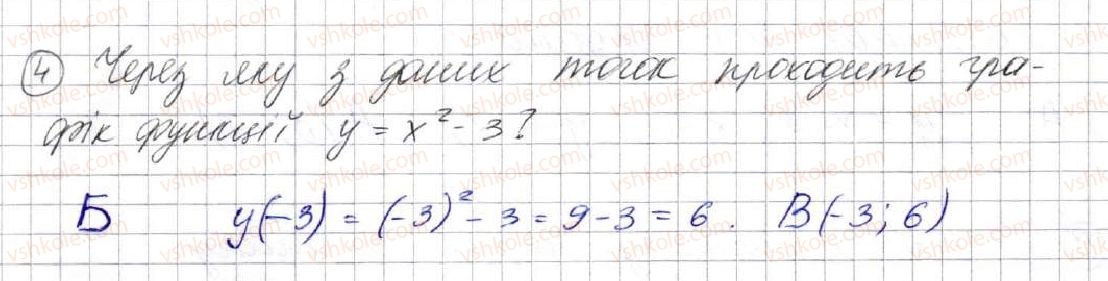 ④ Через яку з даних точок проходить гра-
фік функції y = x² - 3?
Б y(-3) = (-3)² - 3 = 9 - 3 = 6. B(-3; 6)